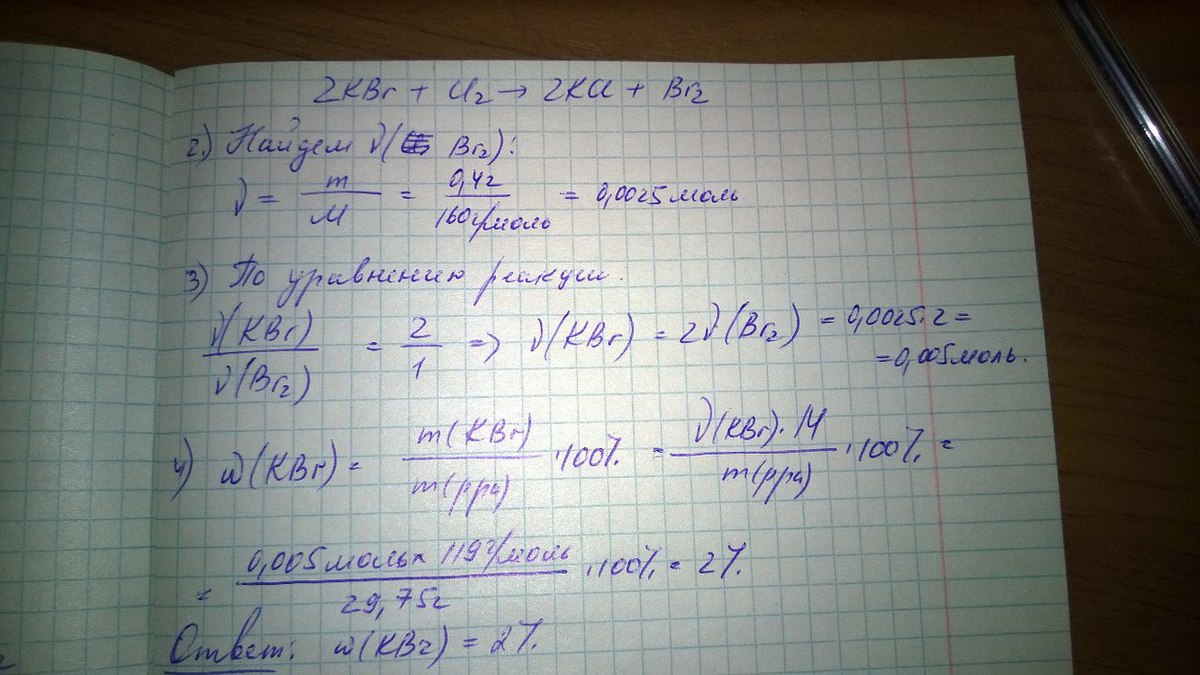 2KBr + Cl₂ → 2KCl + Br₂
2.) Найдем ν( Br₂):
ν = m/M = 0,4г/160г/моль = 0,0025 моль
3) По уравнению реакции.
ν(KBr)/ν(Br₂) = 2/1 => ν(KBr) = 2ν(Br₂) = 0,0025·2 =
= 0,005 моль.
4) ω(KBr) = m(KBr)/m(рра) ·100% = ν(KBr)·M/m(рра) ·100% =
= 0,005 моль × 119 г/моль/29,75г ·100% = 2%.
Ответ: ω(KBr) = 2%.